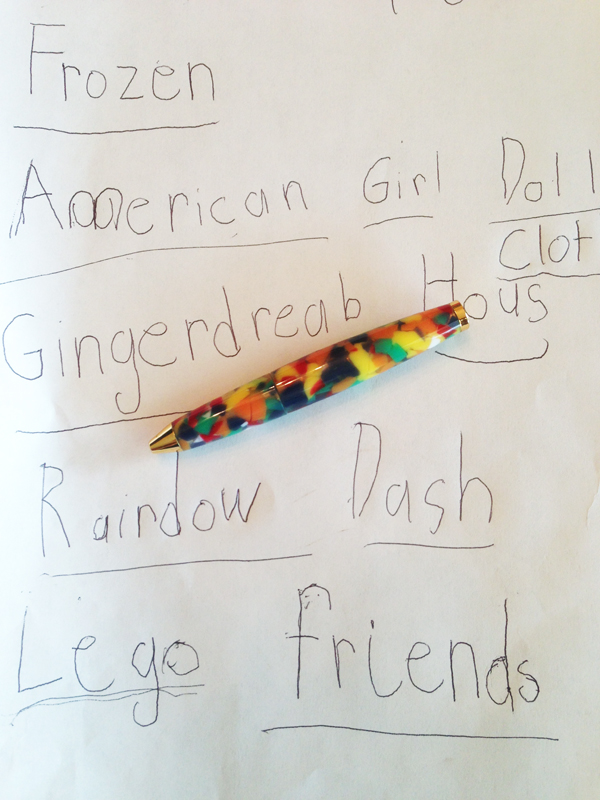 Frozen
American Girl Doll
Clot
Gingerdreab Hous
Rairdow Dash
Lego friends